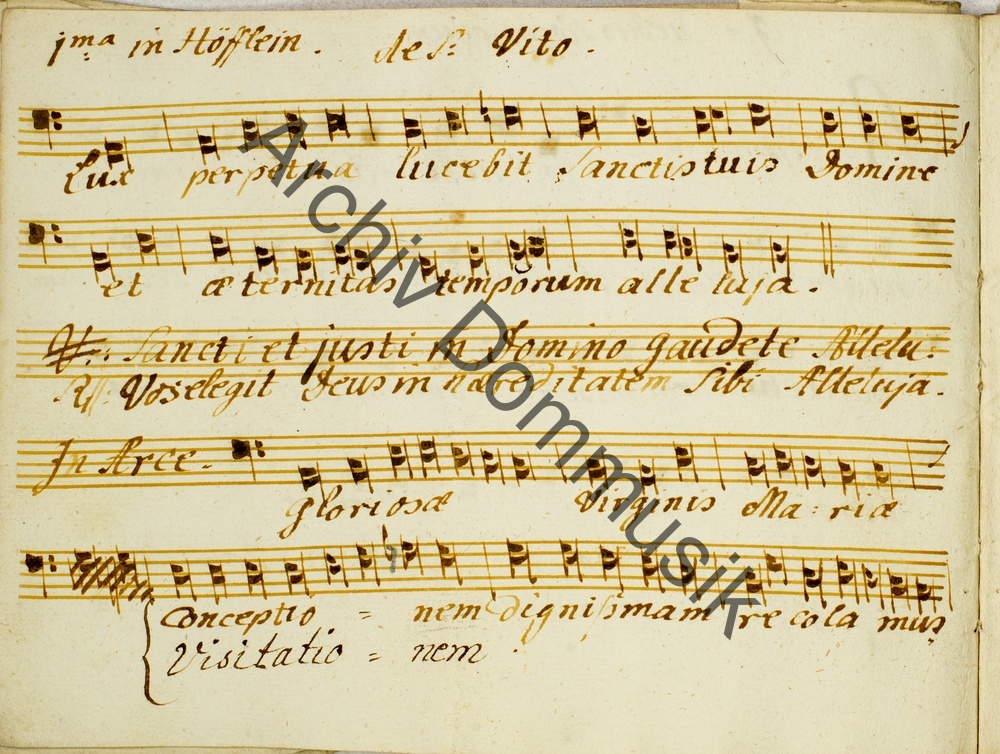 1ma in Höfflein. de S: Vito.
Lux perpetua lucebit Sanctis tuis Domine
et æternitas temporum alleluja.
V: Sancti et justi in Domino gaudete Allelu:
R: Vos elegit Deus in hæreditatem Sibi Alleluja.
In Arce.
Gloriosæ Virginis Ma: riæ
Conceptio = nem dignißmam recolamus
Visitatio = nem
Archiv Dommusik